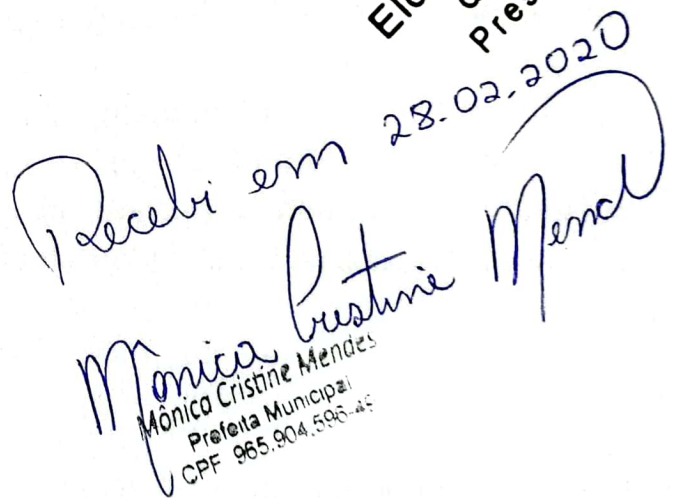 Recebi em 28.02.2020
Mônica Cristine Mend
Mônica Cristine Mendes
Prefeita Municipal
CPF 965.904.596-